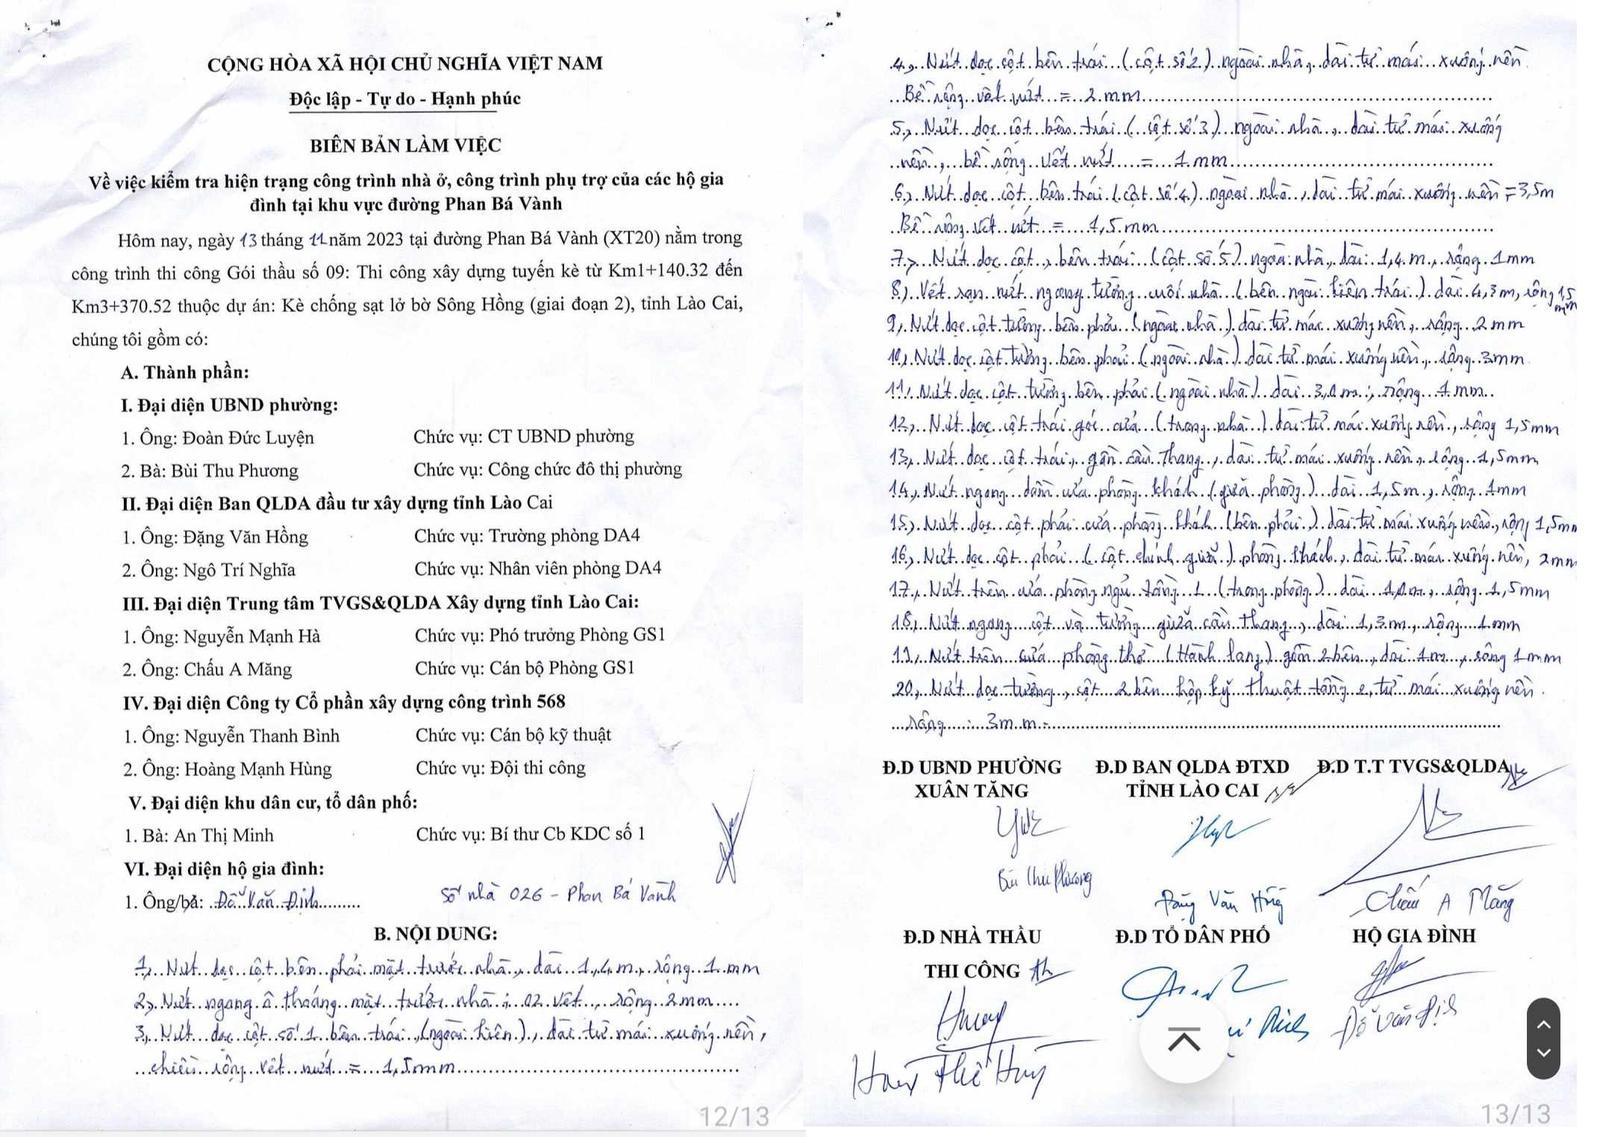 CỘNG HÒA XÃ HỘI CHỦ NGHĨA VIỆT NAM
Độc lập - Tự do - Hạnh phúc
BIÊN BẢN LÀM VIỆC
Về việc kiểm tra hiện trạng công trình nhà ở, công trình phụ trợ của các hộ gia
đình tại khu vực đường Phan Bá Vành
Hôm nay, ngày 13 tháng 11 năm 2023 tại đường Phan Bá Vành (XT20) nằm trong
công trình thi công Gói thầu số 09: Thi công xây dựng tuyến kè từ Km1+140.32 đến
Km3+370.52 thuộc dự án: Kè chống sạt lở bờ Sông Hồng (giai đoạn 2), tỉnh Lào Cai,
chúng tôi gồm có:
A. Thành phần:
I. Đại diện UBND phường:
1. Ông: Đoàn Đức Luyện Chức vụ: CT UBND phường
2. Bà: Bùi Thu Phương Chức vụ: Công chức đô thị phường
II. Đại diện Ban QLDA đầu tư xây dựng tỉnh Lào Cai
1. Ông: Đặng Văn Hồng Chức vụ: Trưởng phòng DA4
2. Ông: Ngô Trí Nghĩa Chức vụ: Nhân viên phòng DA4
III. Đại diện Trung tâm TVGS&QLDA Xây dựng tỉnh Lào Cai:
1. Ông: Nguyễn Mạnh Hà Chức vụ: Phó trưởng Phòng GS1
2. Ông: Chấu A Măng Chức vụ: Cán bộ Phòng GS1
IV. Đại diện Công ty Cổ phần xây dựng công trình 568
1. Ông: Nguyễn Thanh Bình Chức vụ: Cán bộ kỹ thuật
2. Ông: Hoàng Mạnh Hùng Chức vụ: Đội thi công
V. Đại diện khu dân cư, tổ dân phố:
1. Bà: An Thị Minh Chức vụ: Bí thư Cb KDC số 1
VI. Đại diện hộ gia đình:
1. Ông/bà: Đỗ Văn Định Số nhà 026 - Phan Bá Vành
B. NỘI DUNG:
1, Nứt dọc cột bên phải mặt trước nhà, dài 1,4 m, rộng 1 mm
2, Nứt ngang ô thoáng mặt trước nhà; 02 vết, rộng 2mm
3, Nứt dọc cột số 1 bên trái (ngoài hiên), dài từ mái xuống nền,
chiều rộng vết nứt = 1,5mm
12/13
4, Nứt dọc cột bên trái (cột số 2) ngoài nhà, dài từ mái xuống nền
Bề rộng vết nứt = 2 mm
5, Nứt dọc cột bên trái (cột số 3) ngoài nhà, dài từ mái xuống
nền, bề rộng vết nứt = 1 mm
6, Nứt dọc cột bên trái (cột số 4) ngoài nhà, dài từ mái xuống nền = 3,5m
Bề rộng vết nứt = 1,5 mm
7, Nứt dọc cột, bên trái (cột số 5) ngoài nhà, dài 1,4 m, rộng 1mm
8, Vết rạn nứt ngang tường cuối nhà (bên ngoài hiên trái) dài 4,3m, rộng 1,5 mm
9, Nứt dọc cột tường bên phải (ngoài nhà) dài từ mái xuống nền, rộng 2mm
10, Nứt dọc cột tường bên phải (ngoài nhà) dài từ mái xuống nền, rộng 3mm
11, Nứt dọc cột tường bên phải (ngoài nhà) dài 3,0 m; rộng 1 mm
12, Nứt dọc cột trái góc cửa (trong nhà) dài từ mái xuống nền, rộng 1,5mm
13, Nứt dọc cột trái, gần cầu thang, dài từ mái xuống nền, rộng 1,5mm
14, Nứt ngang dầm cửa phòng khách (giữa phòng) dài 1,5m, rộng 1mm
15, Nứt dọc cột phải cửa phòng khách (bên phải) dài từ mái xuống nền, rộng 1,5mm
16, Nứt dọc cột phải (cột chính giữa) phòng khách, dài từ mái xuống nền, 2mm
17, Nứt trên cửa phòng ngủ tầng 1 (trong phòng) dài 1,0m, rộng 1,5mm
18, Nứt ngang cột và tường giữa cầu thang, dài 1,3m, rộng 1mm
19, Nứt trên cửa phòng thờ (Hành lang) gồm 2 bên, dài 1m, rộng 1mm
20, Nứt dọc tường, cột 2 bên hộp kỹ thuật tầng 2, từ mái xuống nền
rộng: 3mm
Đ.D UBND PHƯỜNG Đ.D BAN QLDA ĐTXD Đ.D T.T TVGS&QLDA
XUÂN TĂNG TỈNH LÀO CAI
Bùi Thu Phương
Đặng Văn Hồng Chấu A Măng
Đ.D NHÀ THẦU Đ.D TỔ DÂN PHỐ HỘ GIA ĐÌNH
THI CÔNG
Đỗ Văn Định
13/13